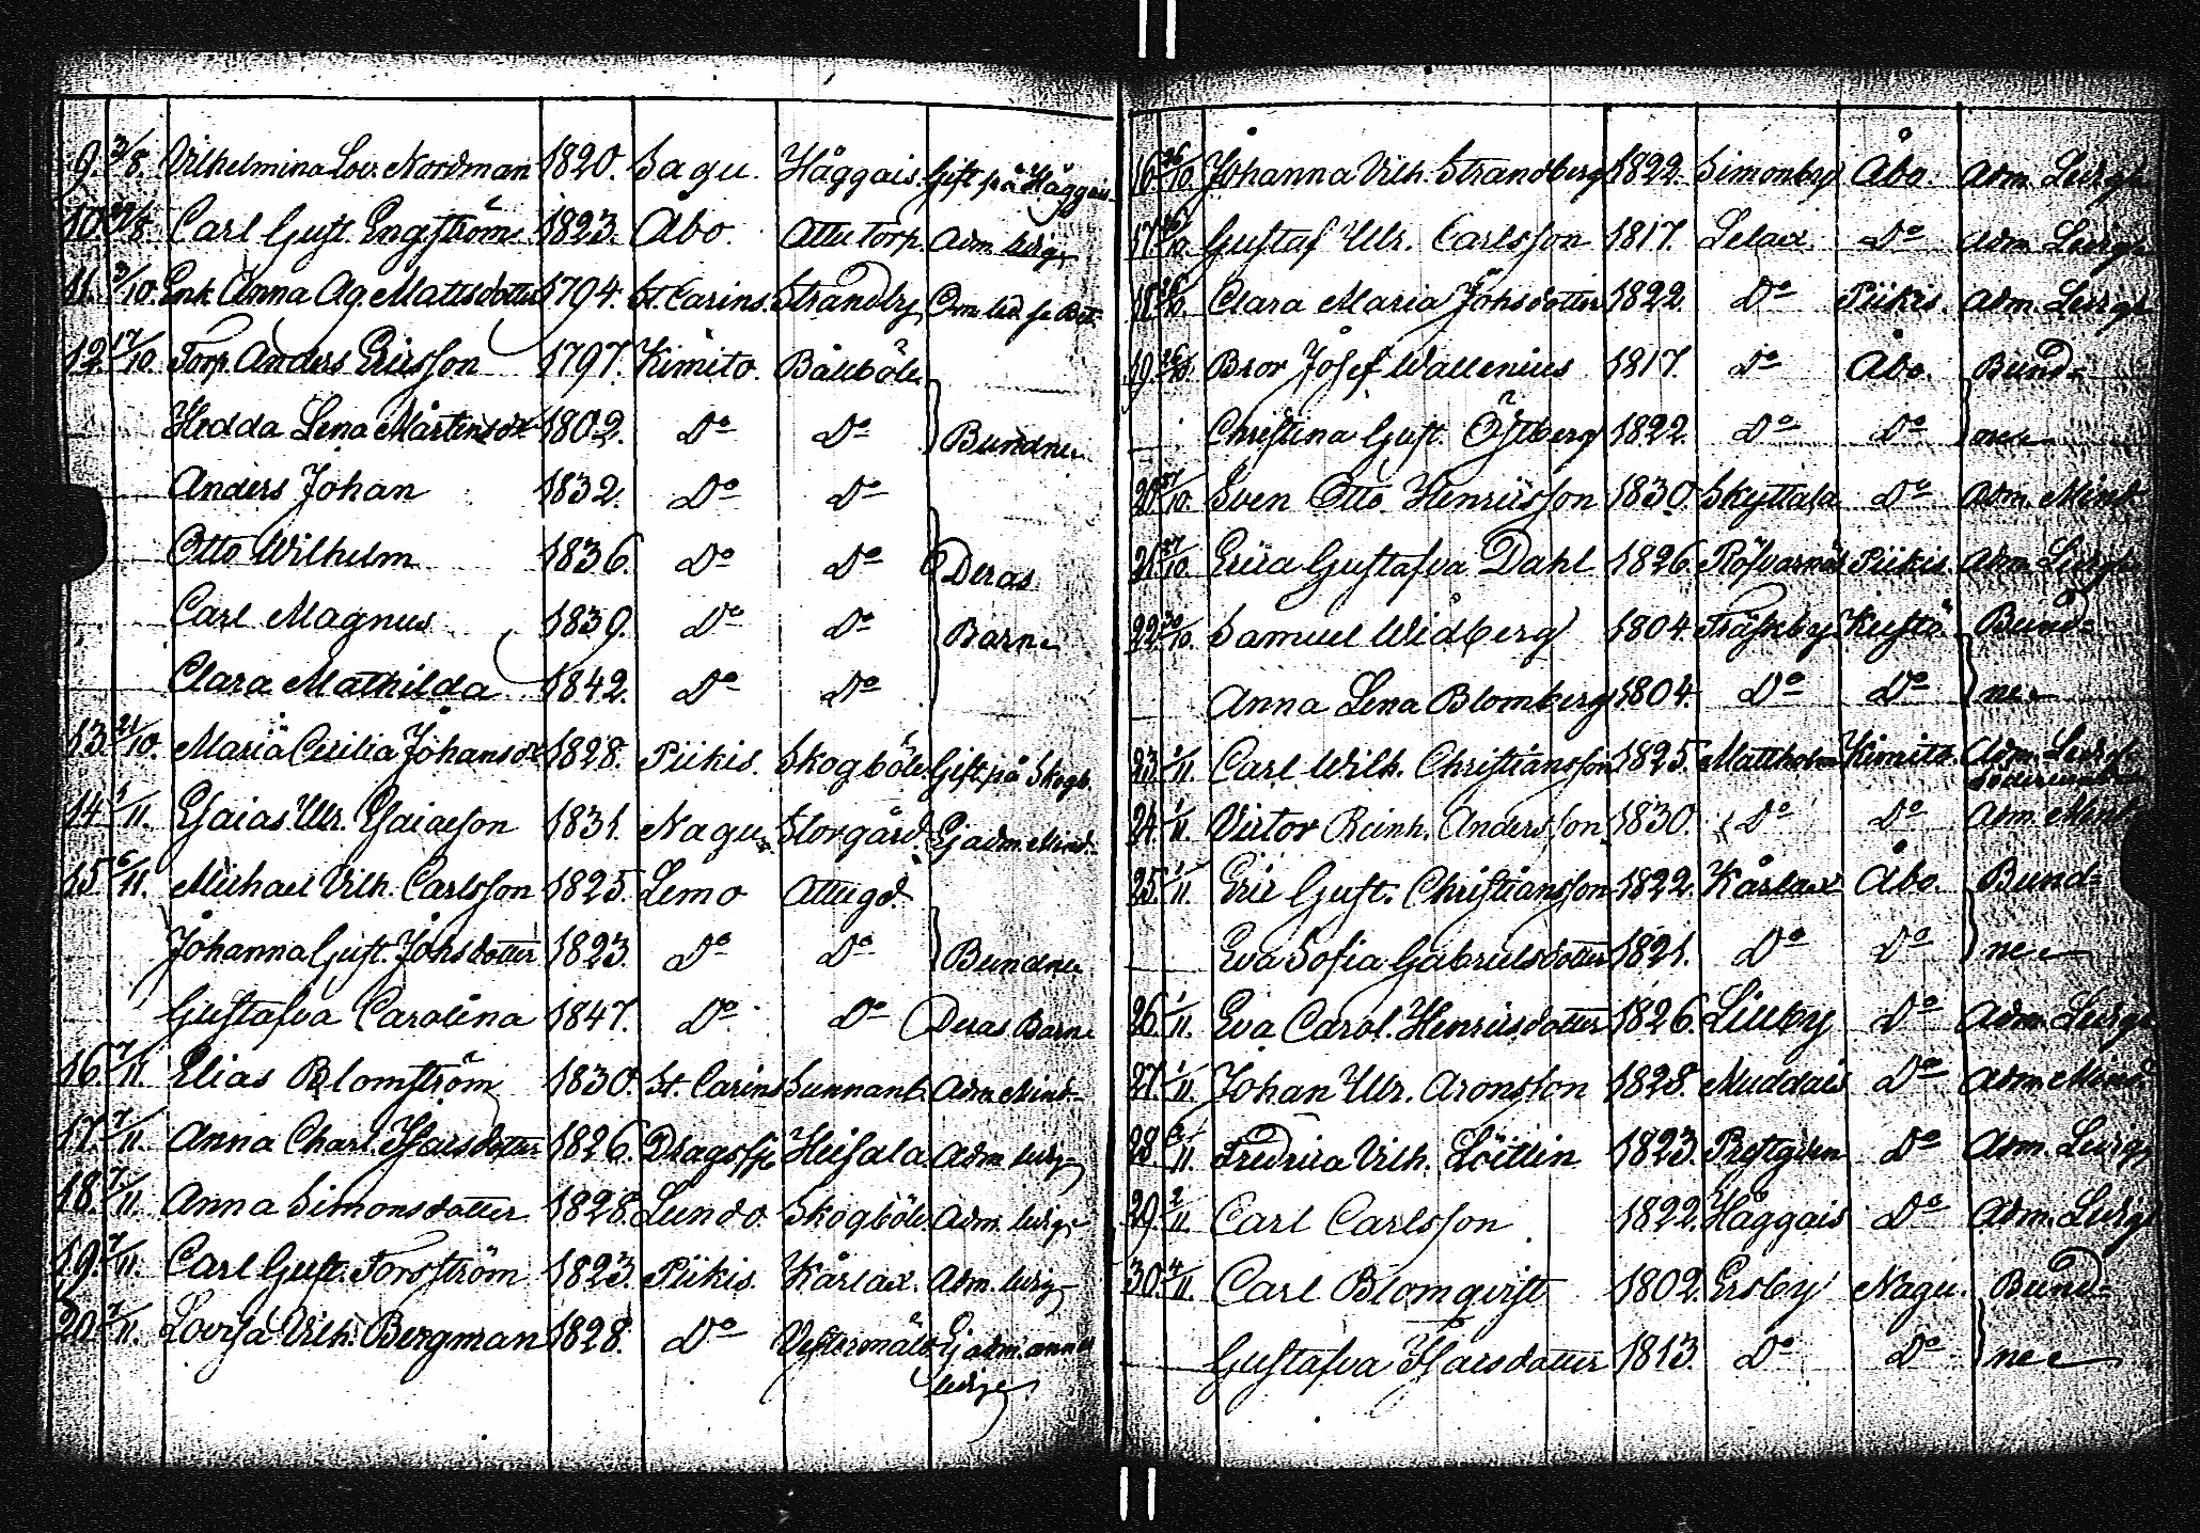 9. 3/8. Vilhelmina Lov. Nordman 1820. Sagu. Håggais. Gift på Håggais.
10. /8. Carl Gust. Engström. 1823. Åbo. Attu torp. Adm. ledige
11. 3/10. Enk. Anna Ag. Mattsdotter 1794. St. Carins. Strandby
12. 17/10. Torp. Anders Ericsson 1797. Kimito. Bålböle
Hedda Lena Mårtensdr 1802. Do Do Bundne
Anders Johan 1832. Do Do
Otto Wilhelm 1836. Do Do Deras
Carl Magnus 1839. Do Do Barn
Clara Mathilda 1842. Do Do
13. 21/10. Maria Cecilia Johansdr 1828. Piikis. Skogböle Gift på Skogb.
14. 5/11. Esaias Ulr. Esaiaeson 1831. Nagu. Storgård. Ej adm. Mind.
15. 6/11. Michael Vilh. Carlsson 1825. Lemo Attu gd.
Johanna Gust. Johsdotter 1823. Do Do Bundne
Gustafva Carolina 1847. Do Do Deras Barn
16. 7/11. Elias Blomström 1830. St. Carins Sunnanb. Adm. Mind.
17. 7/11. Anna Charl. Isaesdotter 1826. Dragsfj. Heisala Adm. ledig
18. 7/11. Anna Simonsdotter 1828. Lundo. Skogböle Adm. ledige
19. 7/11. Carl Gust. Forsström 1823. Piikis. Kårlax. Adm. ledig
20. 7/11. Lovisa Vilh. Bergman 1828. Do Vestermält Ej adm. annu
ledige
16. 26/10. Johanna Vilh. Strandberg 1822. Simonby Åbo. Adm. Ledige
17. /10. Gustaf Ulr. Carlsson 1817. Lelax. Do Adm. Ledige
18. /10. Clara Maria Johsdotter 1822. Do Piikis. Adm. Ledige
19. 26/10. Bror Josef Wallenius 1817. Do Åbo. Bund-
Christina Gust. Östberg 1822. Do Do ne
20. 27/10. Sven Otto Henricsson 1830. Skyttala Do Adm. Mind.
21. 27/10. Erica Gustafva Dahl 1826. Röfvarnäs Piikis. Adm. Ledige
22. 30/10. Samuel Widberg 1804. Träskby Kustö. Bund-
Anna Lena Blomberg 1804. Do Do ne
23. 1/11. Carl Wilh. Christiansson 1825. Mattholm Kimito. Adm. Ledige
24. 1/11. Victor Reinh. Andersson. 1830. Do Do Adm. Mind
25. 1/11. Eric Gust. Christiansson 1822. Kårlax Åbo. Bund-
Eva Sofia Gabrielsdotter 1821. Do Do ne
26. 1/11. Eva Carol. Henricsdotter 1826. Lielby Do Adm. Ledige
27. 1/11. Johan Ulr. Aronsson 1828. Muddais Do Adm. Mind.
28. /11. Fredrica Vilh. Löitlin 1823. Prestgden Do Adm. Ledig
29. 2/11. Carl Carlsson 1822. Håggais Do Adm. Ledige
30. 4/11. Carl Blomqvist 1802. Ersby Nagu. Bund-
Gustafva Isacsdotter 1813. Do Do ne